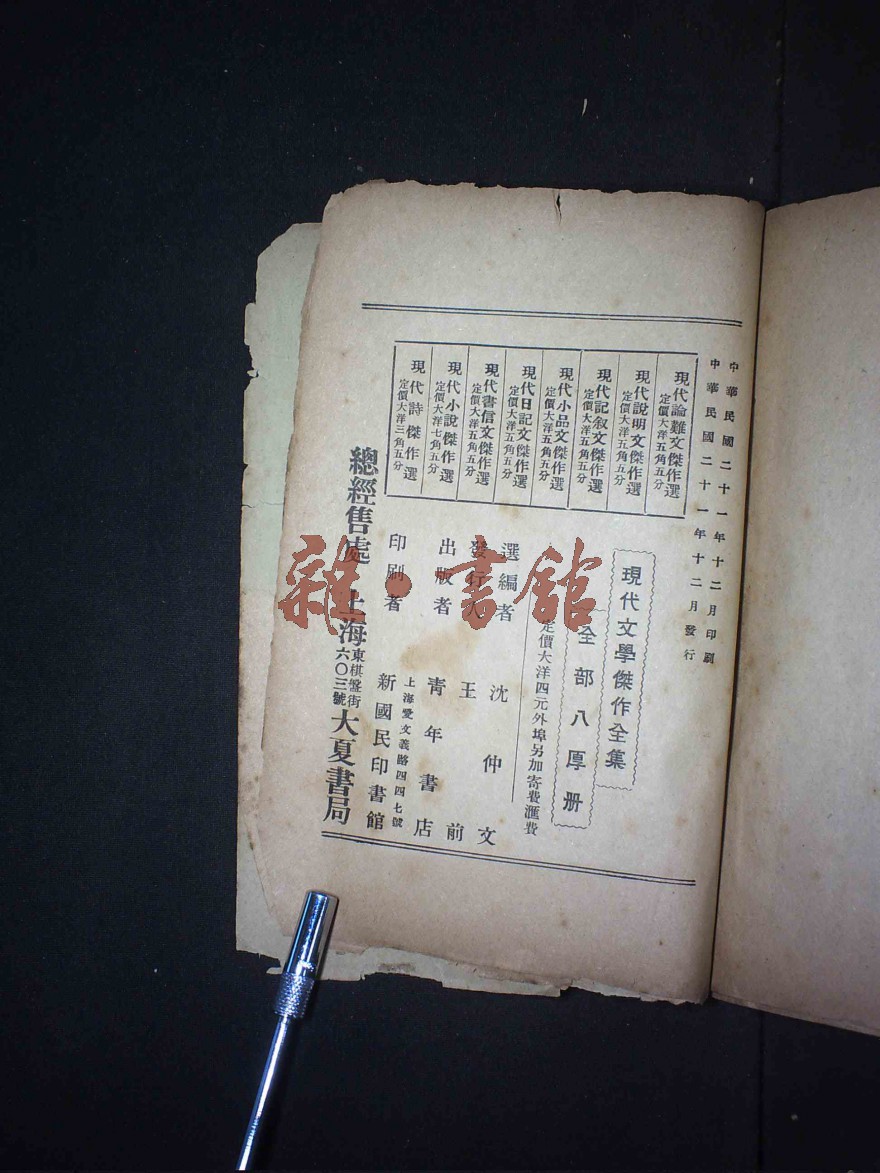 中華民國二十一年十二月印刷
中華民國二十一年十二月發行
現代論難文傑作選
定價大洋五角五分
現代說明文傑作選
定價大洋五角五分
現代記叙文傑作選
定價大洋五角五分
現代小品文傑作選
定價大洋五角五分
現代日記文傑作選
定價大洋五角五分
現代書信文傑作選
定價大洋五角五分
現代小說傑作選
定價大洋七角五分
現代詩傑作選
定價大洋三角五分
現代文學傑作全集
全部八厚册
定價大洋四元外埠另加寄費滙費
選編者 沈仲文
發行人 王前
出版者 青年書店
上海愛文義路四四七號
印刷者 新國民印書館
總經售處 上海東棋盤街六〇三號大夏書局
雜·書館